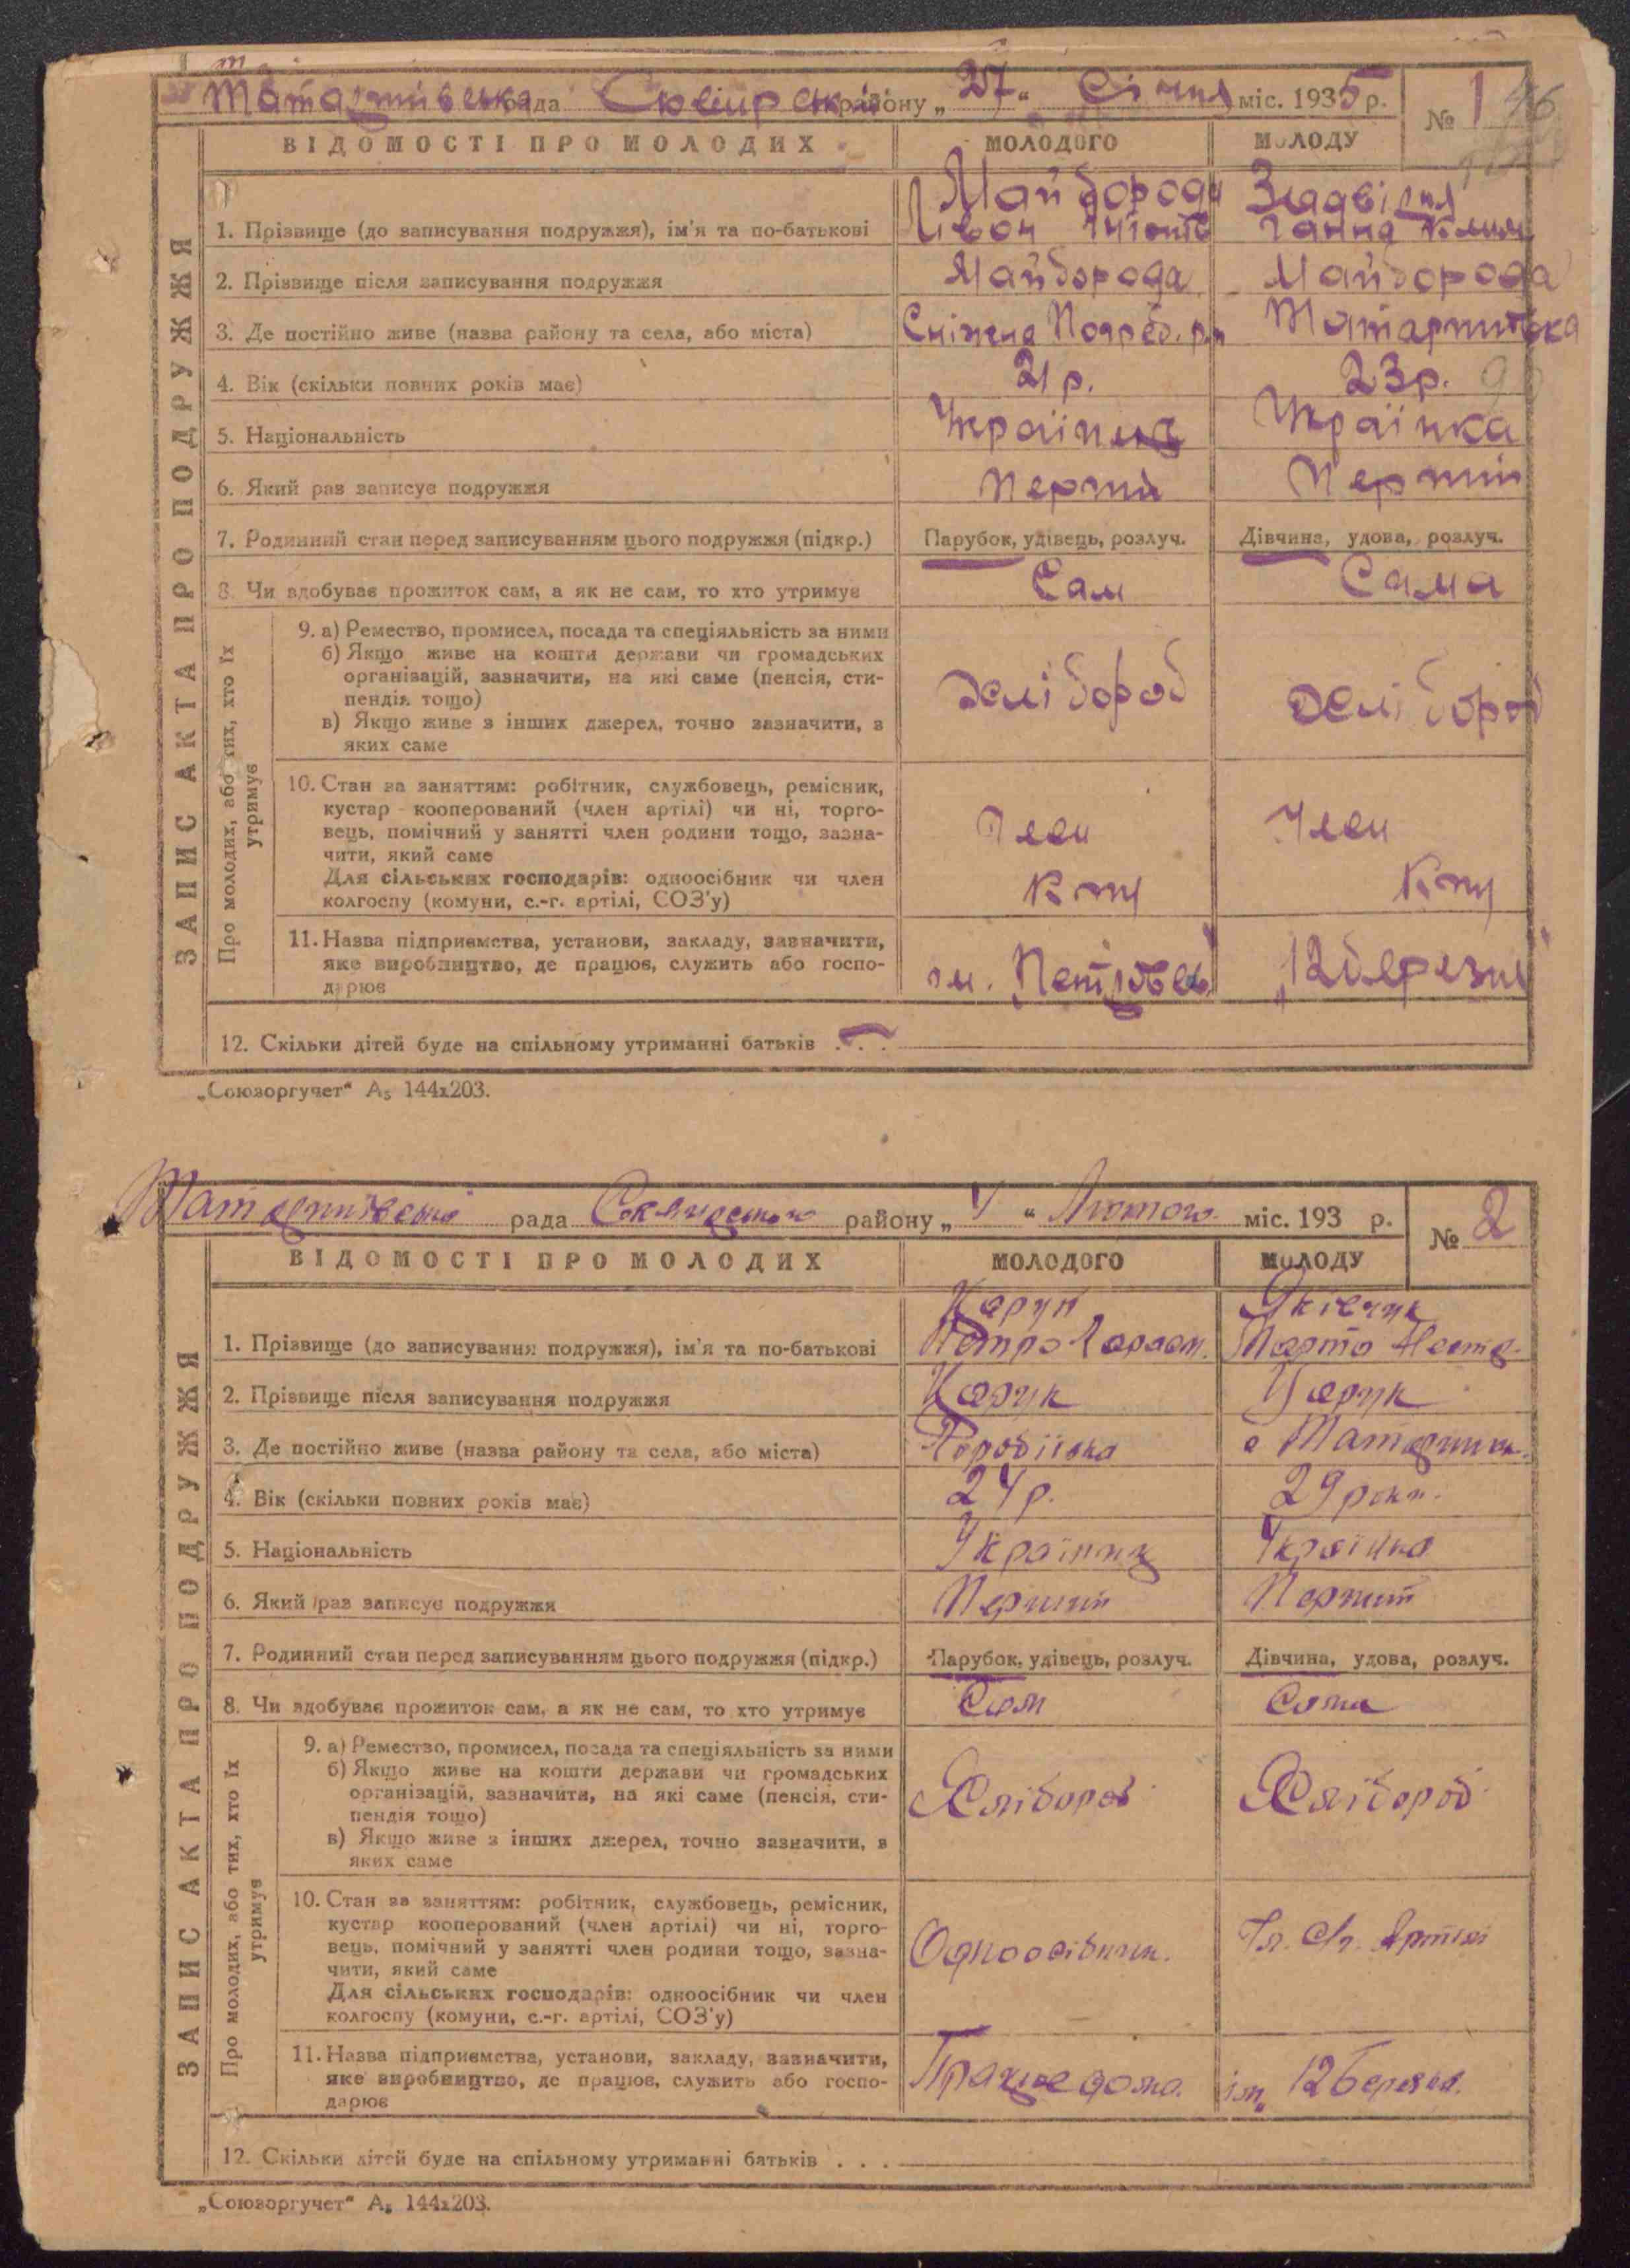 рада району „27“ Січня міс. 1935 р. № 1 46
ВІДОМОСТІ ПРО МОЛОДИХ МОЛОДОГО МОЛОДУ
ЗАПИС АКТА ПРО ПОДРУЖЖЯ
Майборода
1. Прізвище (до записування подружжя), ім'я та по-батькові Ганна
2. Прізвище після записування подружжя Майборода Майборода
3. Де постійно живе (назва району та села, або міста)
4. Вік (скільки повних років має) 21 р. 23 р.
5. Національність Українка
6. Який раз записує подружжя
7. Родинний стан перед записуванням цього подружжя (підкр.) Парубок, удівець, розлуч. Дівчина, удова, розлуч.
8. Чи здобуває прожиток сам, а як не сам, то хто утримує Сам Сама
Про молодих, або тих, хто їх утримує
9. а) Ремество, промисел, посада та спеціяльність за ними
б) Якщо живе на кошти держави чи громадських
організацій, зазначити, на які саме (пенсія, сти-
пендія тощо) Хлібороб Хлібороб
в) Якщо живе з інших джерел, точно зазначити, з
яких саме
10. Стан за заняттям: робітник, службовець, ремісник,
кустар кооперований (член артілі) чи ні, торго-
вець, помічний у занятті член родини тощо, зазна-
чити, який саме
Для сільських господарів: одноосібник чи член
колгоспу (комуни, с.-г. артілі, СОЗ'у)
11. Назва підприємства, установи, закладу, зазначити,
яке виробництво, де працює, служить або госпо-
дарює „12 березня“
12. Скільки дітей буде на спільному утриманні батьків . . .
„Союзоргучет“ А₅ 144х203.
рада району „4“ Лютого міс. 193 р. № 2
ВІДОМОСТІ ПРО МОЛОДИХ МОЛОДОГО МОЛОДУ
ЗАПИС АКТА ПРО ПОДРУЖЖЯ
Яківчук
1. Прізвище (до записування подружжя), ім'я та по-батькові Петро
2. Прізвище після записування подружжя
3. Де постійно живе (назва району та села, або міста)
4. Вік (скільки повних років має) 24 р.
5. Національність Українка
6. Який раз записує подружжя
7. Родинний стан перед записуванням цього подружжя (підкр.) Парубок, удівець, розлуч. Дівчина, удова, розлуч.
8. Чи здобуває прожиток сам, а як не сам, то хто утримує Сам Сама
Про молодих, або тих, хто їх утримує
9. а) Ремество, промисел, посада та спеціяльність за ними
б) Якщо живе на кошти держави чи громадських
організацій, зазначити, на які саме (пенсія, сти-
пендія тощо) Хлібороб Хлібороб
в) Якщо живе з інших джерел, точно зазначити, з
яких саме
10. Стан за заняттям: робітник, службовець, ремісник,
кустар кооперований (член артілі) чи ні, торго-
вець, помічний у занятті член родини тощо, зазна-
чити, який саме Одноосібник. Артілі
Для сільських господарів: одноосібник чи член
колгоспу (комуни, с.-г. артілі, СОЗ'у)
11. Назва підприємства, установи, закладу, зазначити,
яке виробництво, де працює, служить або госпо-
дарює Працює дома. ім. 12 Березня.
12. Скільки дітей буде на спільному утриманні батьків . . .
„Союзоргучет“ А₅ 144х203.